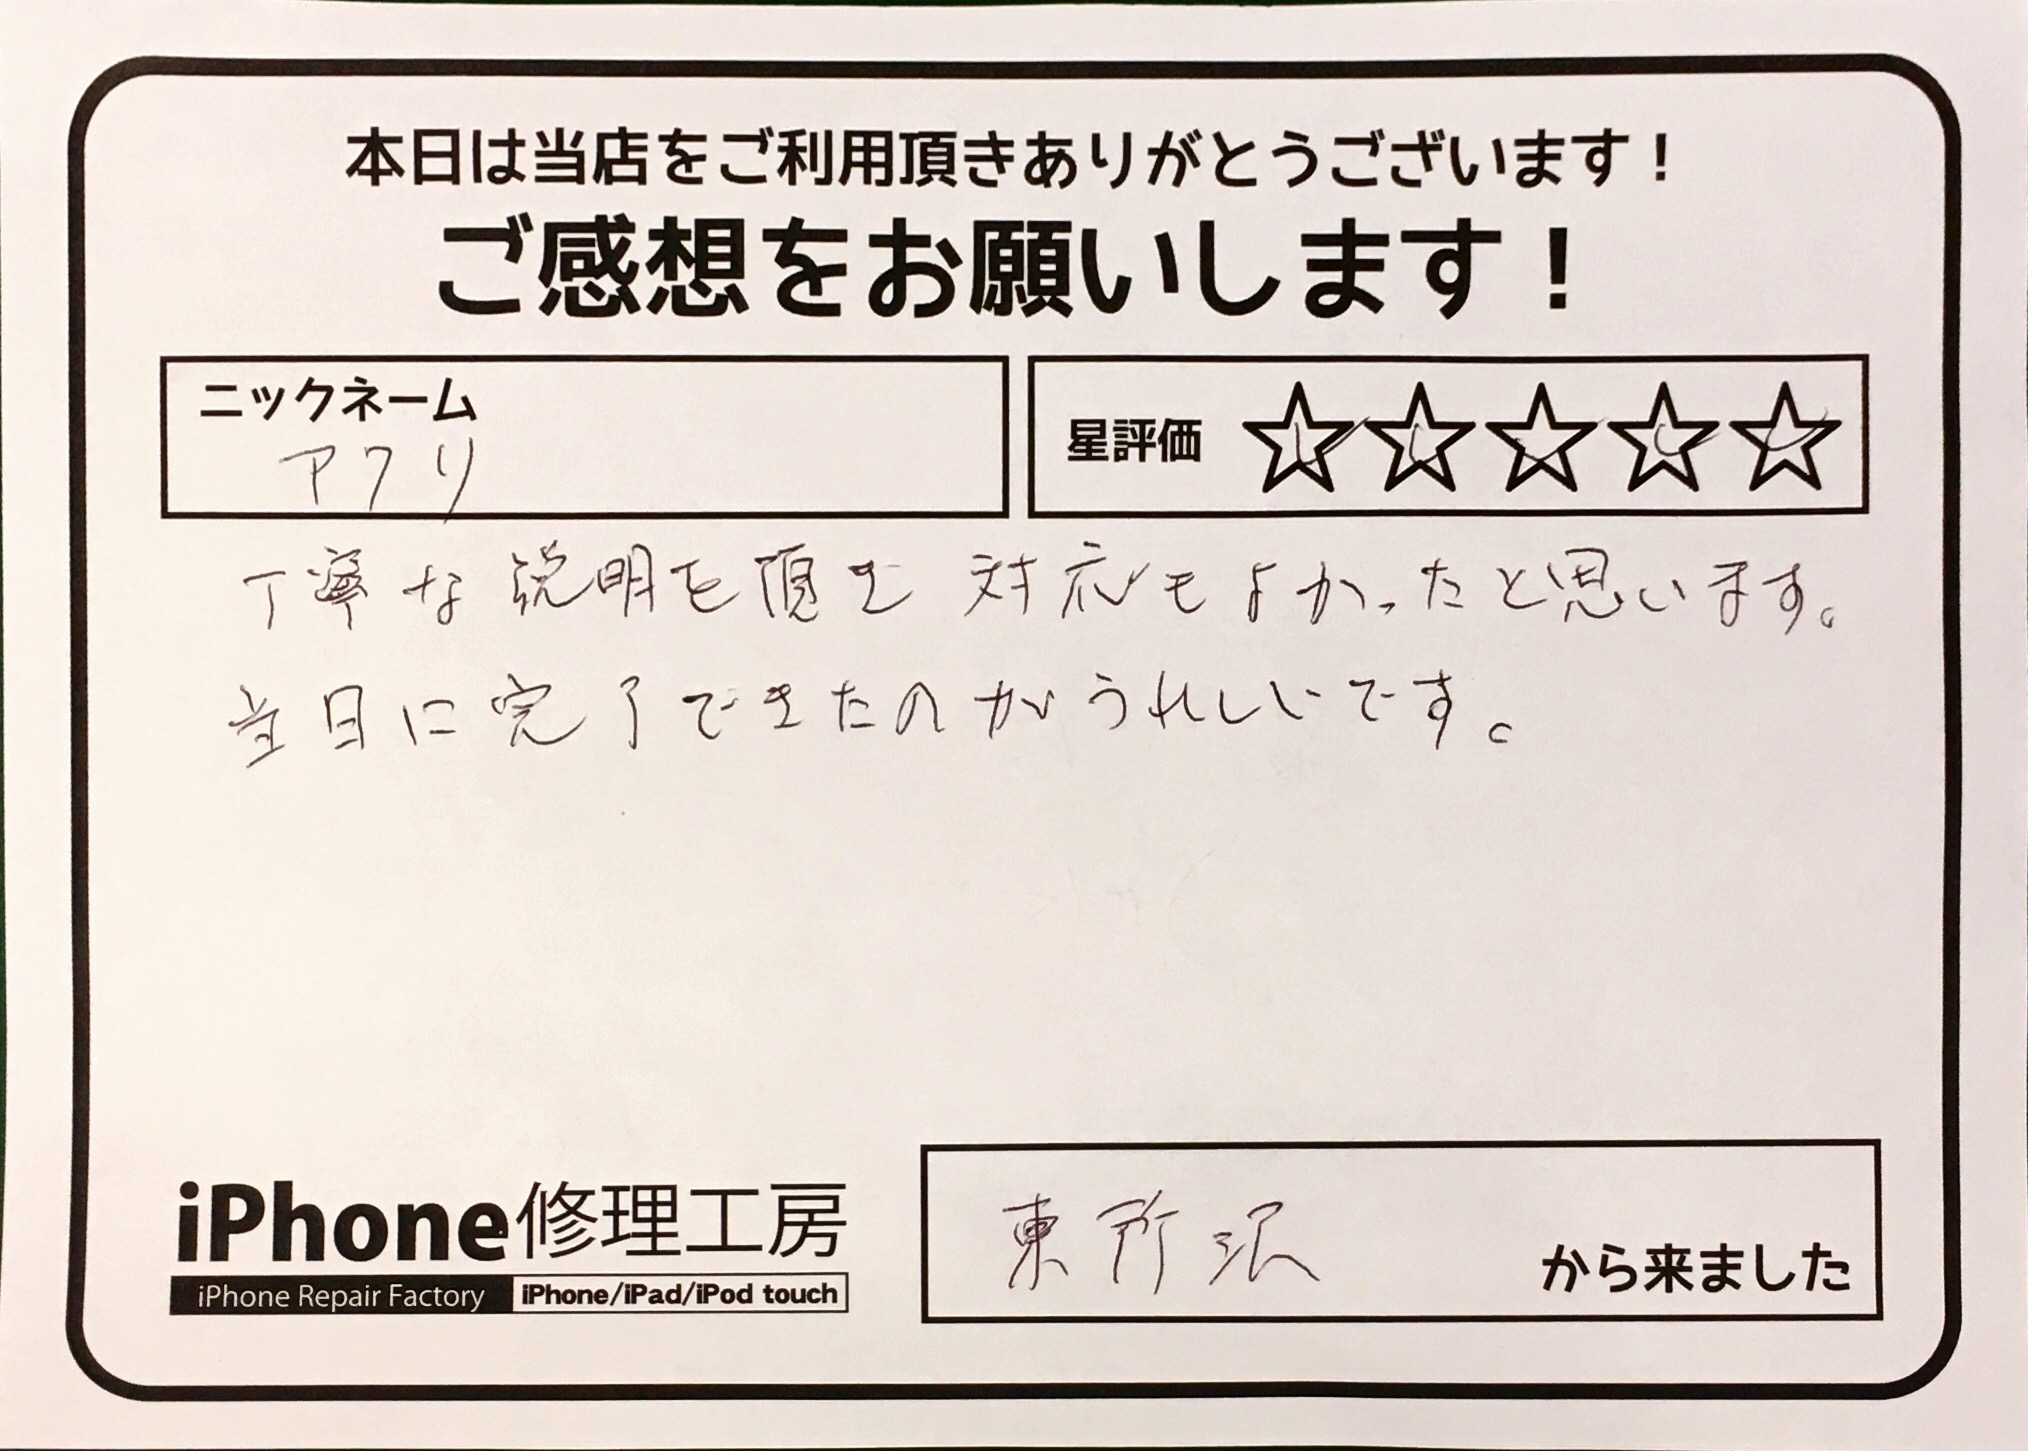 本日は当店をご利用頂きありがとうございます！
ご感想をお願いします！
ニックネーム
アクリ
星評価 ☆☆☆☆☆
丁寧な説明を頂き 対応もよかったと思います。
当日に完了できたのがうれしいです。
iPhone修理工房
iPhone Repair Factory iPhone/iPad/iPod touch
東所沢 から来ました